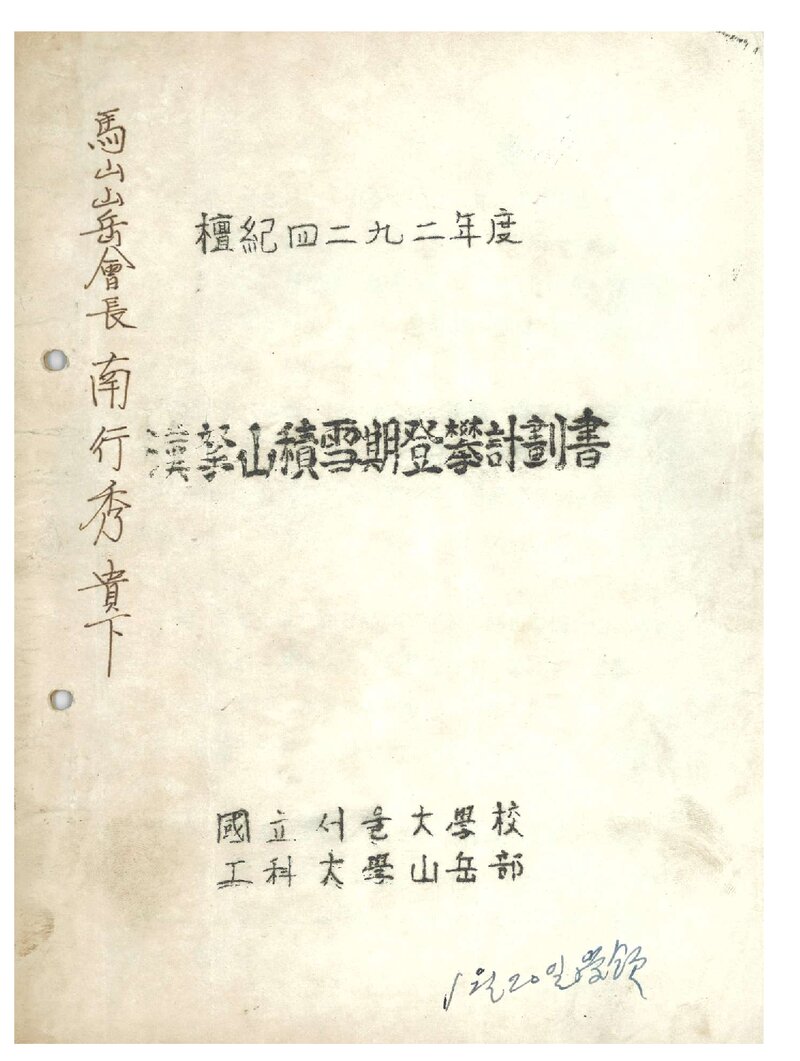 檀紀四二九二年度
漢拏山積雪期登攀計劃書
馬山山岳會長 南行秀 貴下
國立서울大學校
工科大學山岳部
1월20일受領